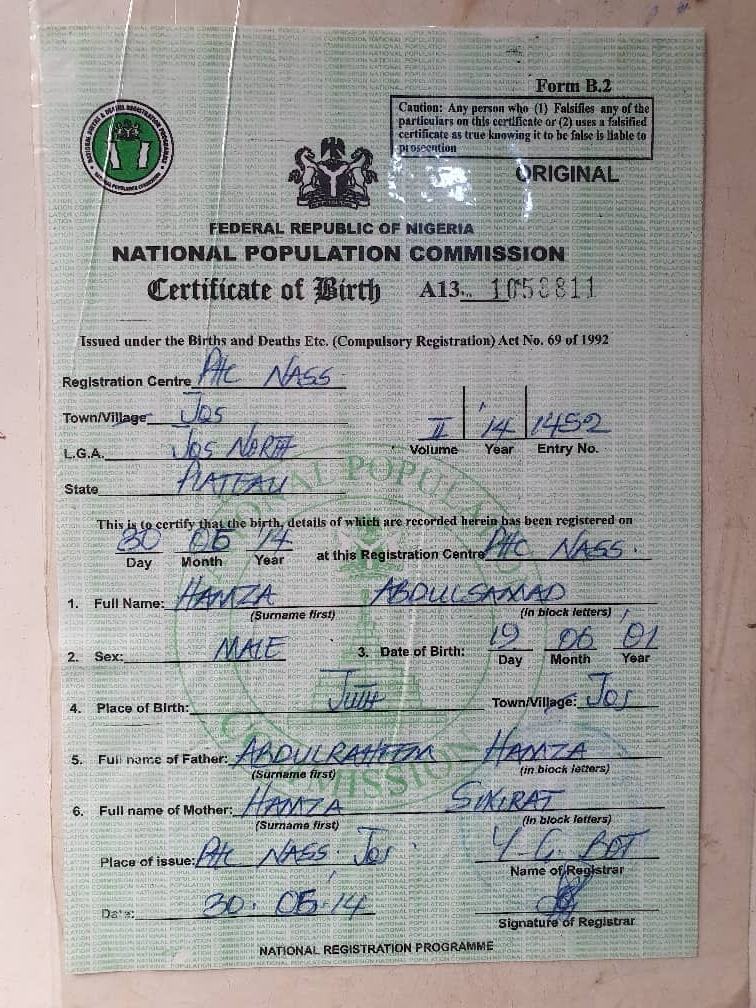 Form B.2
Caution: Any person who (1) Falsifies any of the
particulars on this certificate or (2) uses a falsified
certificate as true knowing it to be false is liable to
prosecution
ORIGINAL
FEDERAL REPUBLIC OF NIGERIA
NATIONAL POPULATION COMMISSION
Certificate of Birth A13.. 1058811
Issued under the Births and Deaths Etc. (Compulsory Registration) Act No. 69 of 1992
Registration Centre PHC NASS
Town/Village JOS
L.G.A. JOS NORTH
II '14 1452
Volume Year Entry No.
State PLATEAU
This is to certify that the birth, details of which are recorded herein has been registered on
30 05 14 at this Registration Centre PHC NASS.
Day Month Year
1. Full Name: HAMZA ABDULSAMAD
(Surname first) (in block letters)
2. Sex: MALE 3. Date of Birth: 19 06 '01
Day Month Year
4. Place of Birth: JUTH Town/Village: JOS
5. Full name of Father: ABDULRAHEEM HAMZA
(Surname first) (in block letters)
6. Full name of Mother: HAMZA SIKIRAT
(Surname first) (in block letters)
Place of issue: PHC NASS. JOS. Y. G. BOT
Name of Registrar
Date: 30. 05. 14
Signature of Registrar
NATIONAL REGISTRATION PROGRAMME